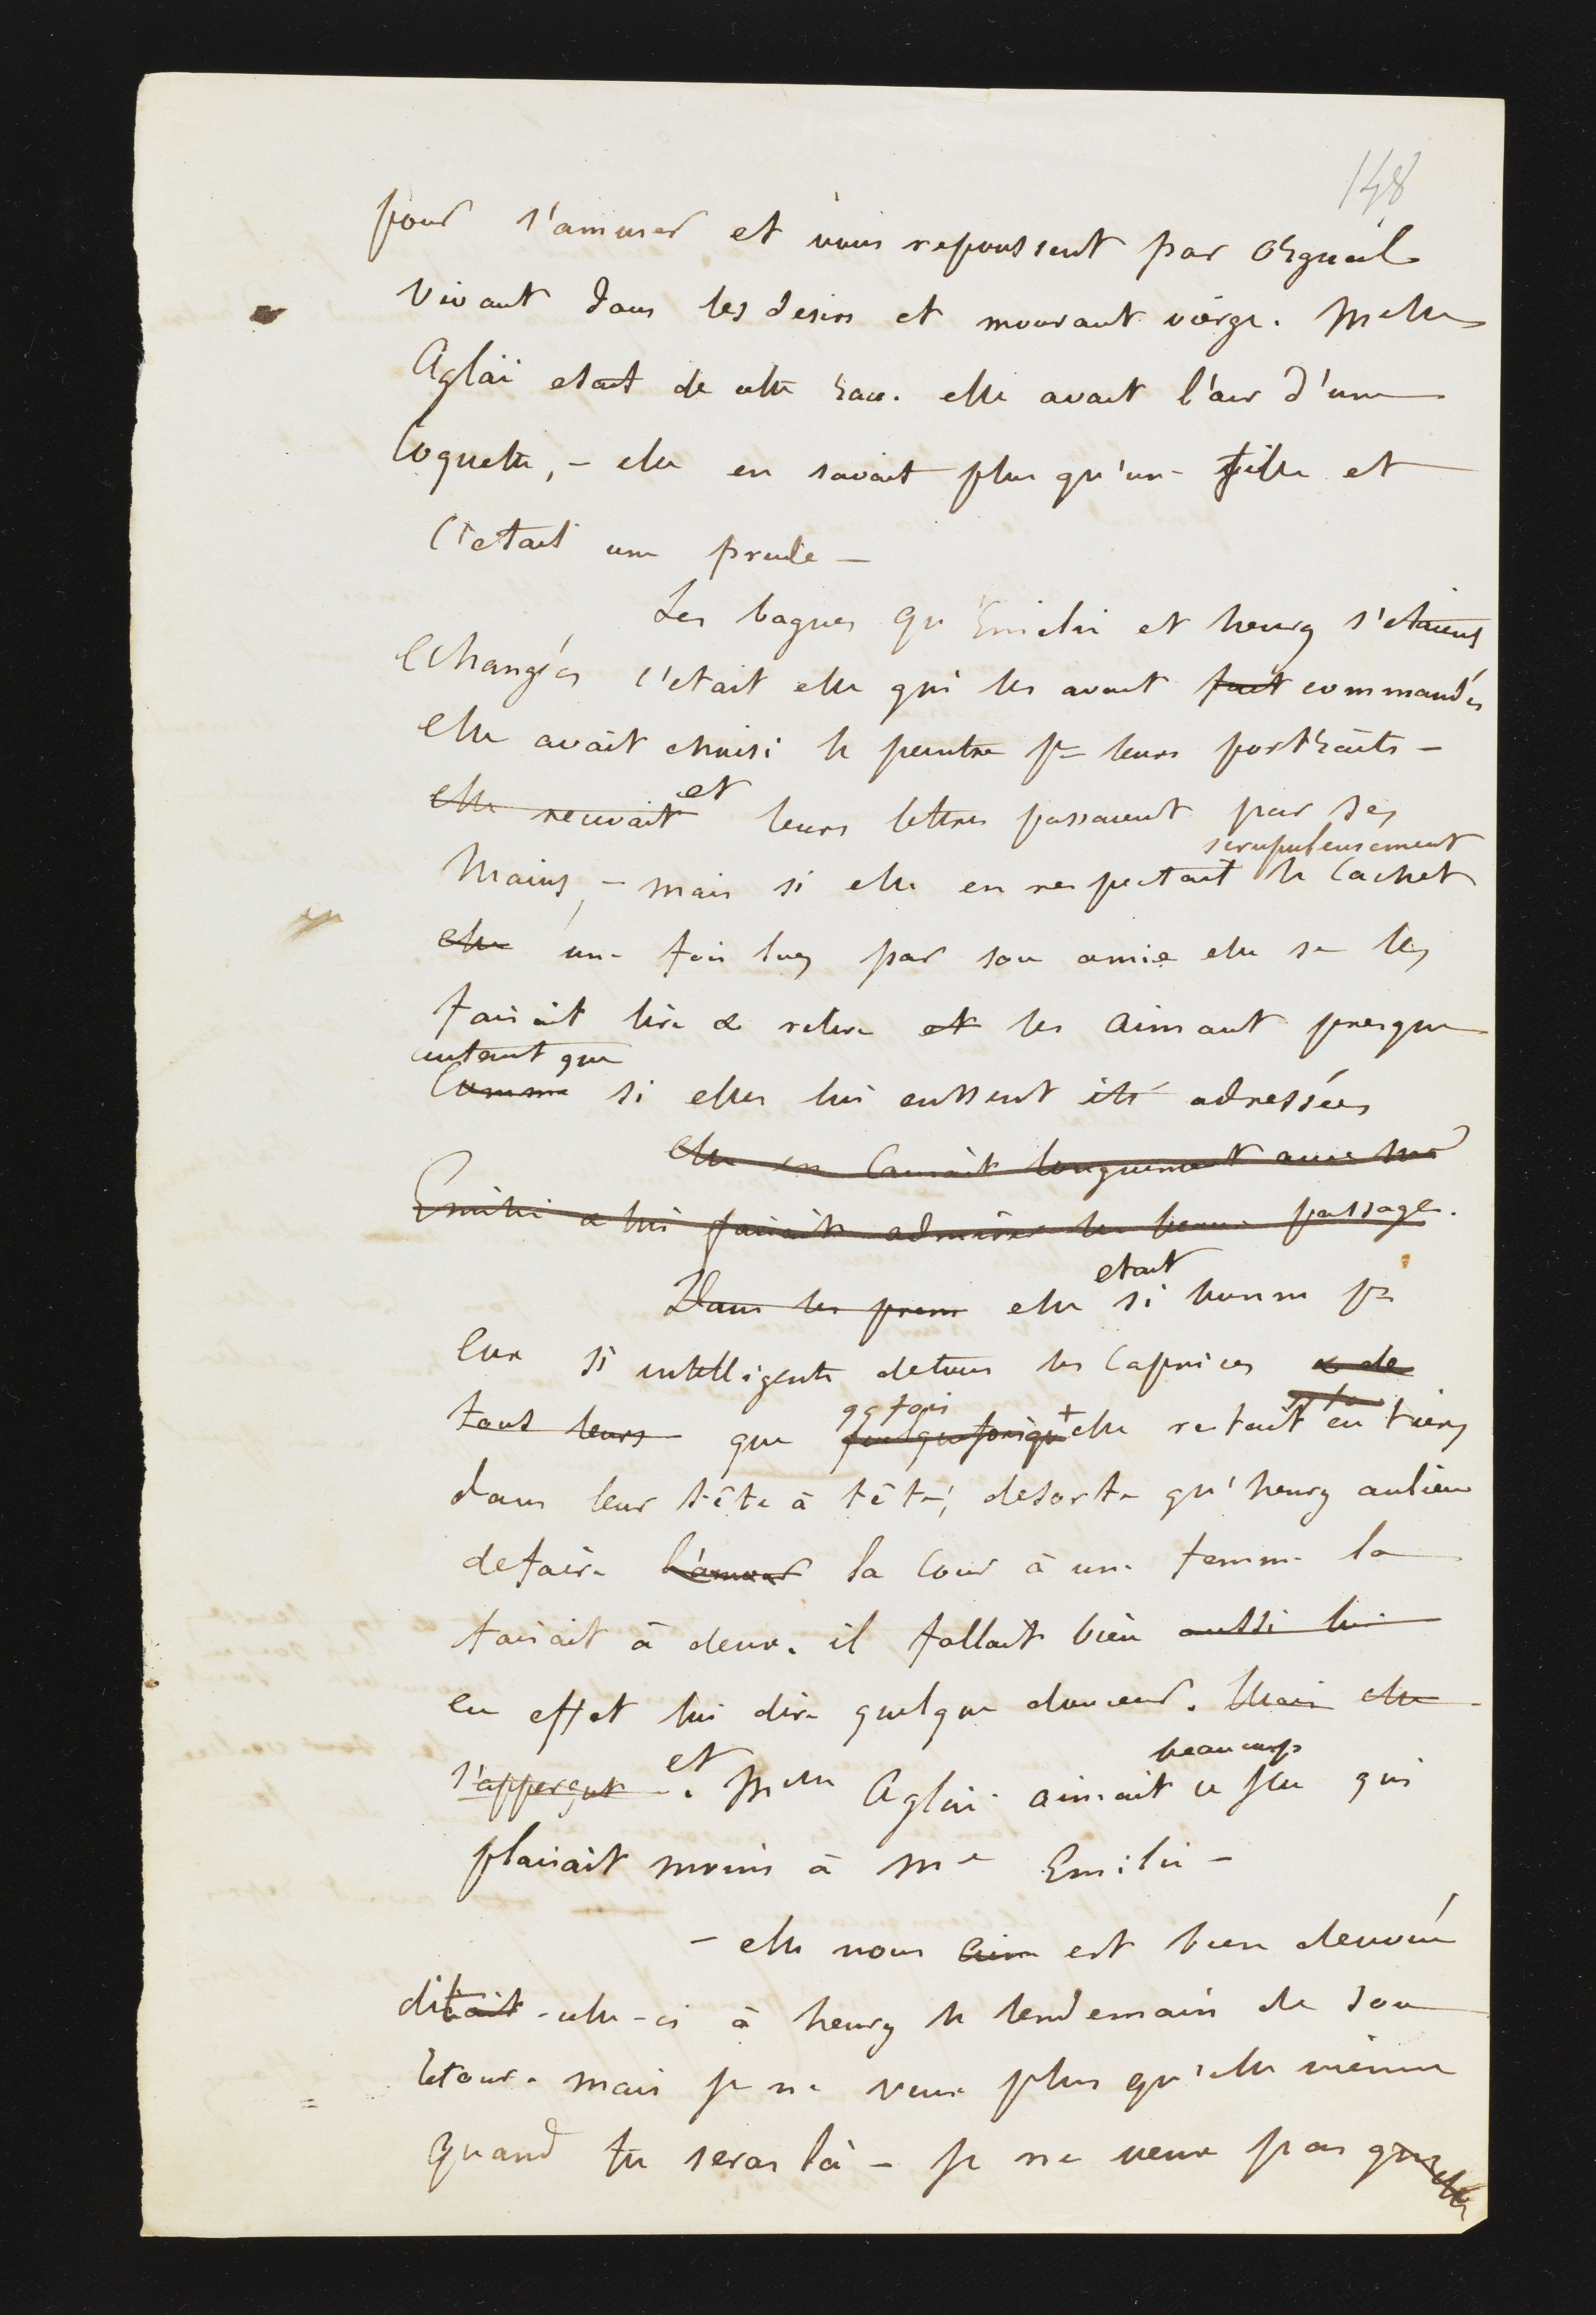 148
pour s'amuser et vous repoussent par orgueil
vivant dans les desirs et mourant vierge. Melle
Aglaë etait de cette race. elle avait l'air d'une
coquette, - elle en savait plus qu'une fille et
c'etait une prude -
Les bagues qu'Emilie et henry s'etaient
echangées c'etait elle qui les avait fait commandées
elle avait choisi le peintre pr leurs portraits -
elle recevait et leurs lettres passaient par ses
mains, - mais si elle en respectait scrupuleusement le cachet
elle une fois lues par son amie elle se les
faisait lire & relire et les aimant presque
autant que
comme si elles lui eussent été adressées
elle en causait longuement avec me
Emilie & lui faisait admirer les beaux passage.
Dans les prem elle etait si bonne pr
eux si intelligente de tous les caprices & de
tous leurs que qqfois quelquefois qu'elle restait en tiers
dans leur tête à tête, desorte qu'henry aulieu
defaire l'amour la cour à une femme la
faisait à deux. il fallait bien aussi lui
en effet lui dire quelque douceur. Mais elle
s'apperçut et. Melle Aglaë aimait beaucoup ce jeu qui
plaisait moins à me Emilie -
- elle nous aim est bien devouée
disait celle-ci à henry le lendemain de son
retour. mais je ne veux plus qu'elle vienne
quand tu seras là - je ne veux pas qu'elle